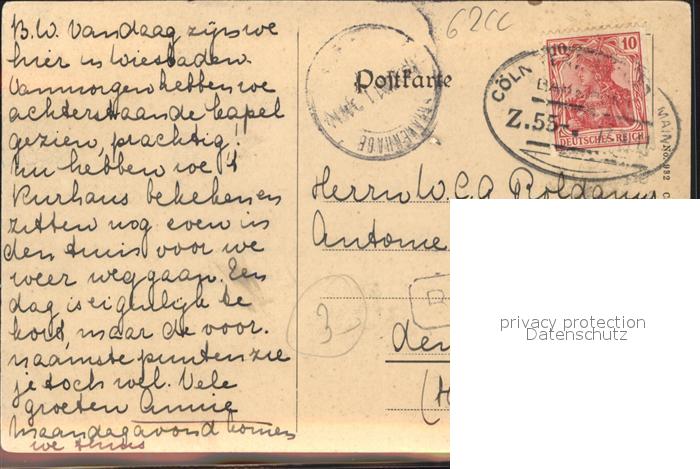 B.W. Vandaag zijn we
hier in Wiesbaden.
Vanmorgen hebben we
achterstaande kapel
gezien, prachtig!
nu hebben we 't
Kurhaus bekeken en
zitten nog even in
den tuin voor we
weer weg gaan. Een
dag is eigenlijk te
kort, maar de voor-
naamste punten zie
je toch wel. Vele
groeten Annie
Maandagavond komen
we thuis
62CC
Postkarte
'S GRAVENHAGE
CÖLN
Z.55
MAIN No. 932
10 10
DEUTSCHES REICH
Herrn W.C.A.
Antonie
den
(H
3
privacy protection
Datenschutz